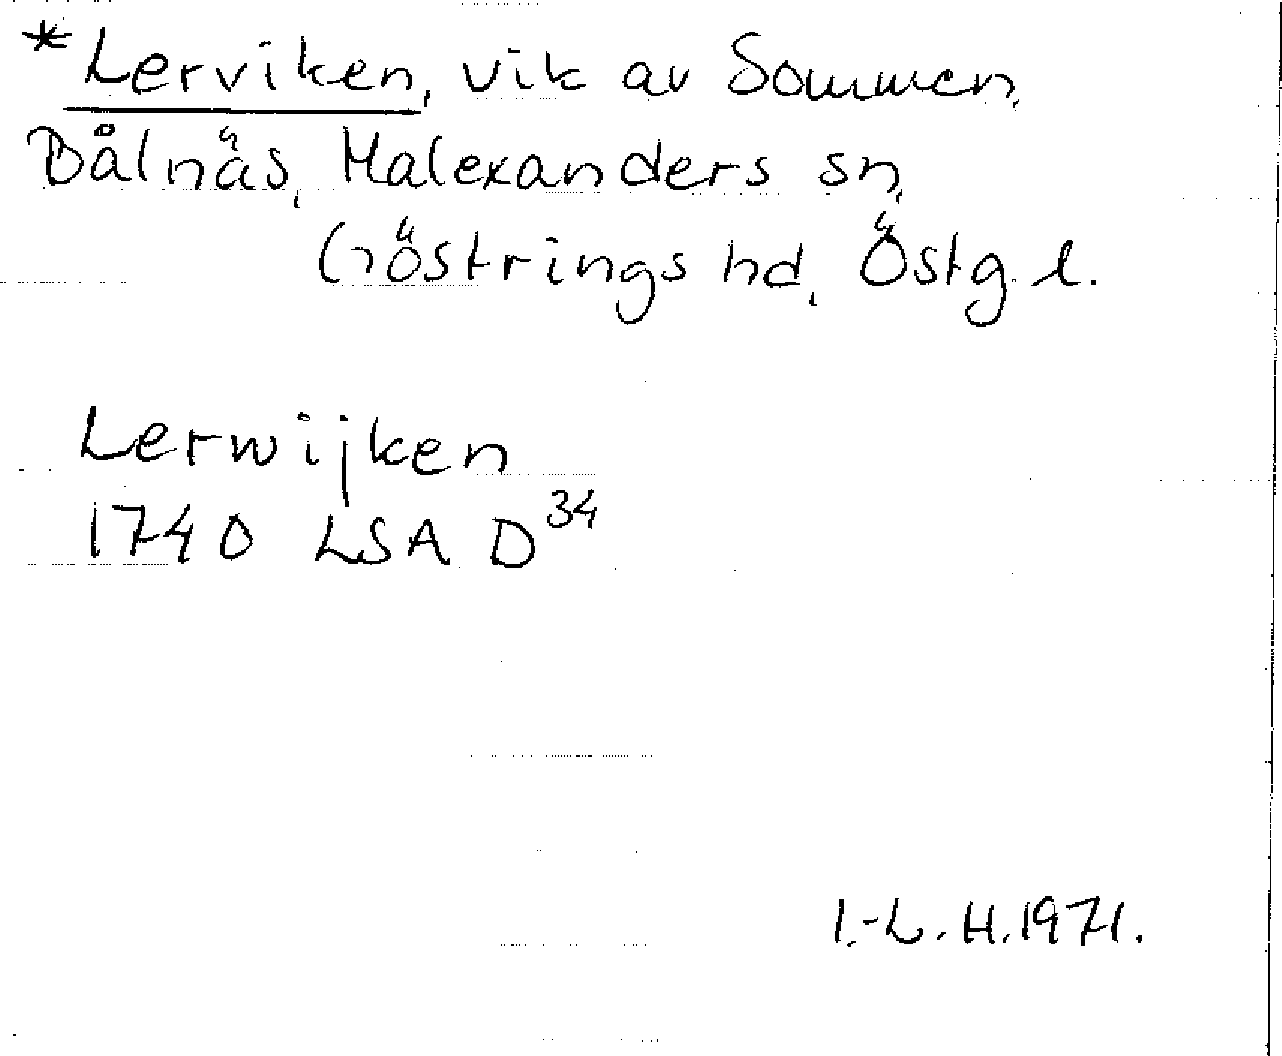 *Lerviken, vik av Sommen,
Bålnäs, Malexanders sn,
Göstrings hd, Östg. l.
Lerwijken
1740 LSA D³⁴
I.-L. H. 1971.